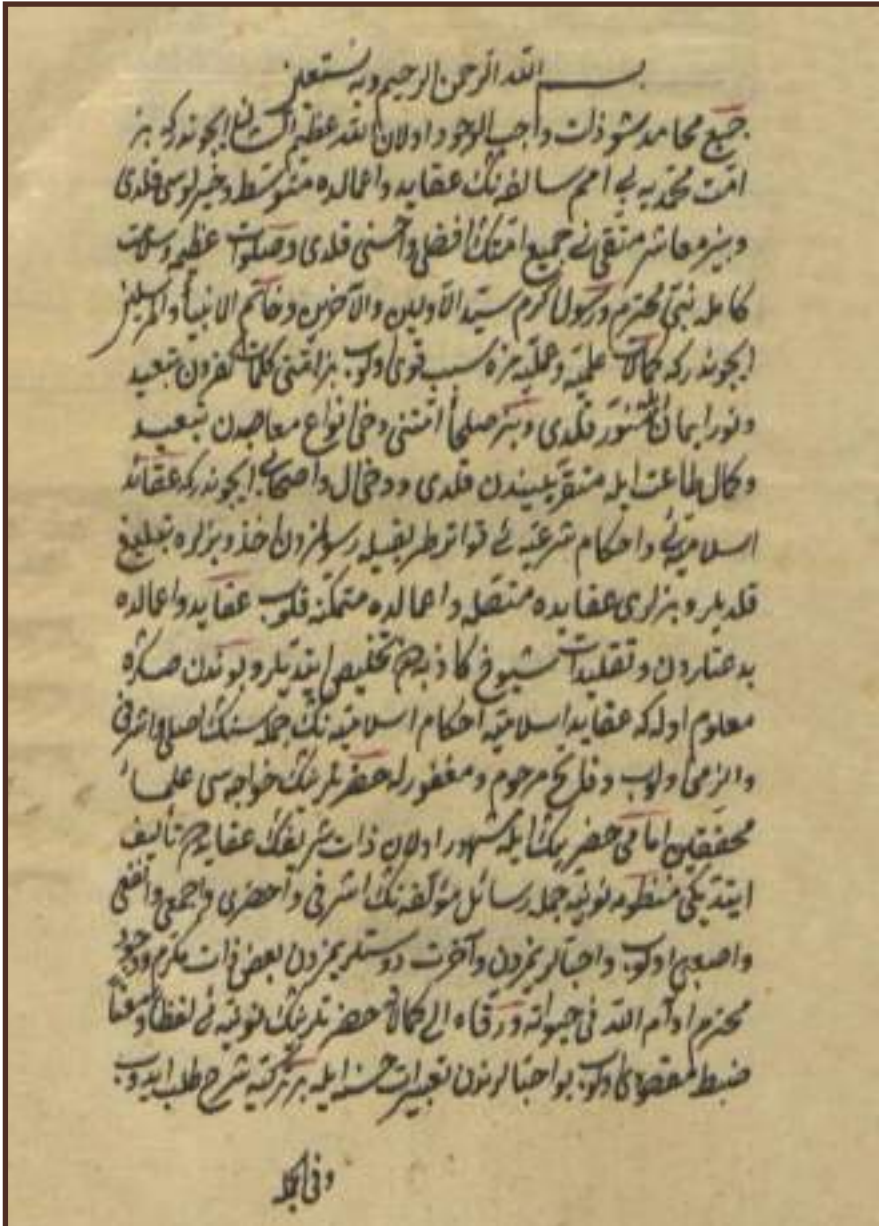 بسم الله الرحمن الرحيم وبه نستعين
جميع محامد شو ذات واجب الوجود اولان الله عظيم الشان ايچوندركه بز
امت محمديه يى امم سالفه نك عقايد واعمالده متوسط وخيرلوسى قلدى
وبيزه معاشر متقى نى جميع امتك افضلى واحسنى قلدى وصلوات عظيمه وسلامت
كامله نبى محترم ورسول اكرم سيد الاولين والآخرين وخاتم الانبياء والمرسلين
ايچوندركه كمالات علميه وعمليه مزه سبب قوى اولوب بز امتنى كلمات كفردن تبعيد
ونور ايمان ايله منور قلدى وبز صلحاء امتنى دخى انواع معاصدن تبعيد
وكمال طاعت ايله متقربيندن قلدى ودخى آل واصحابى ايچوندركه عقائد
اسلاميه يى واحكام شرعيه يى تواتر طريقيله رسولمزدن اخذ وبزلره تبليغ
قلديلر وبزلرى عقايده متصله واعمالده متمكنه قلوب عقايد واعمالده
بدعتلردن وتقليدات شيوخ كاذبه دن تخليص ايتديلر وبوندن صكره
معلوم اوله كه عقايد اسلاميه احكام اسلاميه نك جمله سنك اصلى واشرفى
والزمى اولوب وفاتح مرحوم ومغفور له حضرتلرينك خواجه سى علماء
محققين امامى حضر بك ايله مشهور اولان ذات شريفك عقايده تأليف
ايتديكى منظومه نونيه جمله رسائل مؤلفه نك اشرفى واحضرى واجمعى وانفعى
واصعبى اولوب واحبالريمزدن وآخرت دوستلريمزدن بعض ذات مكرم ووجود
محترم ادام الله فى حيوته ورقاه الى كمالاته حضرتلرينك نونيه يى لفظا ومعنا
ضبط مقصودى اولوب بو احبالرندن تعبيرات حسنه ايله بر تركيه شرح طلب ايدوب